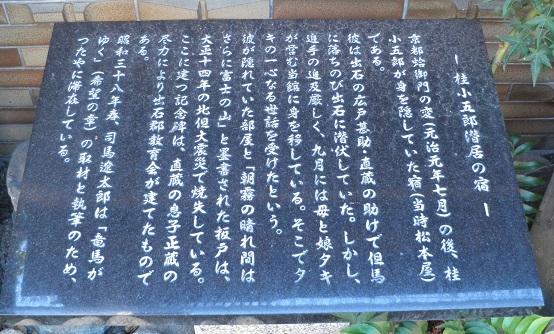 ― 桂小五郎潜居の宿 ―
京都蛤御門の変(元治元年七月)の後、桂
小五郎が身を隠していた宿(当時松本屋)
である。
彼は出石の広戸甚助、直蔵の助けで但馬
に落ちのび出石に潜伏していた。しかし、
追手の追及厳しく、九月には母と娘タキ
が営む当館に身を移している。そこでタ
キの一心なる世話を受けたという。
彼が隠れていた部屋と「朝霧の晴れ間は
さらに富士の山」と墨書された板戸は、
大正十四年の北但大震災で焼失している。
ここに建つ記念碑は、直蔵の息子正蔵の
尽力により出石郡教育会が建てたもので
ある。
昭和三十八年春、司馬遼太郎は「竜馬が
ゆく」(希望の章)の取材と執筆のため、
つたやに滞在している。